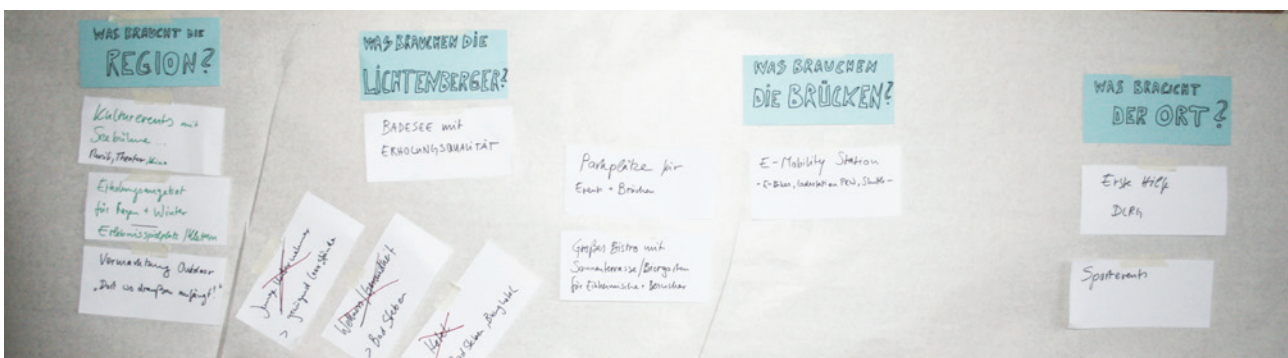 WAS BRAUCHT DIE
REGION?
Kulturevents mit
Seebühne...
Musik, Theater, Kino
Erholungsangebot
für Regen + Winter
Erlebnisspielplatz / Klettern
Vermarktung Outdoor
„Dort wo draußen anfängt!"
WAS BRAUCHEN DIE
LICHTENBERGER?
BADESEE mit
ERHOLUNGSQUALITÄT
Junge Unternehmer
> genügend Leerstände
> Bad Steben
Hotel
Bad Steben, Burghotel
Parkplätze für
Event + Brücken
Großes Bistro mit
Sonnenterrasse/Biergarten
für Einheimische + Besucher
WAS BRAUCHEN
DIE BRÜCKEN?
E-Mobility Station
- E-Bikes, Ladestation PKW, Shuttle -
WAS BRAUCHT
DER ORT?
Erste Hilfe
DLRG
Sportevents